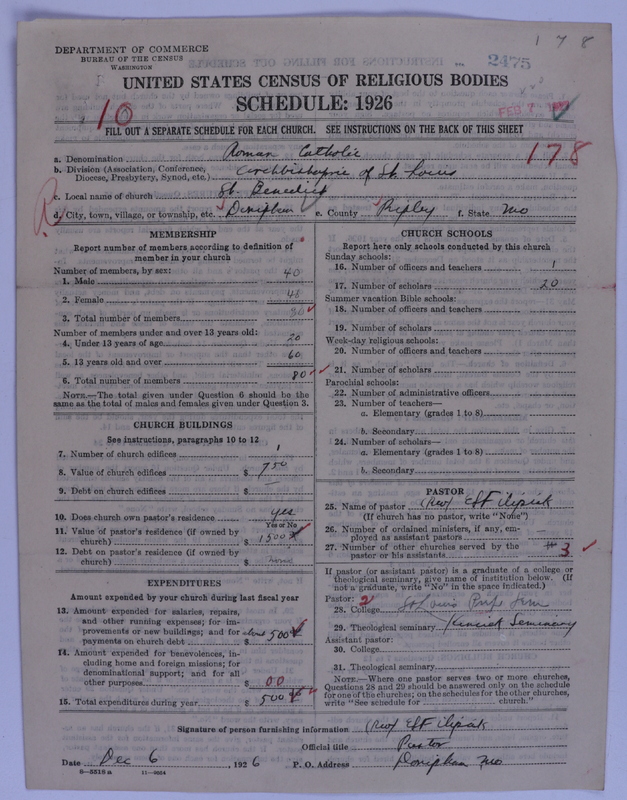 1 7 8
DEPARTMENT OF COMMERCE
BUREAU OF THE CENSUS
WASHINGTON
2475
UNITED STATES CENSUS OF RELIGIOUS BODIES
SCHEDULE: 1926
FEB 7
10
FILL OUT A SEPARATE SCHEDULE FOR EACH CHURCH. SEE INSTRUCTIONS ON THE BACK OF THIS SHEET
178
a. Denomination Roman Catholic
b. Division (Association, Conference, Diocese, Presbytery, Synod, etc.) Archbishopric of St. Louis
c. Local name of church St. Benedict
d. City, town, village, or township, etc. Doniphan e. County Ripley f. State Mo
MEMBERSHIP
Report number of members according to definition of
member in your church
Number of members, by sex:
1. Male 40
2. Female
3. Total number of members 80
Number of members under and over 13 years old:
4. Under 13 years of age 20
5. 13 years old and over 60
6. Total number of members 80
NOTE.—The total given under Question 6 should be the
same as the total of males and females given under Question 3.
CHURCH BUILDINGS
See instructions, paragraphs 10 to 12
7. Number of church edifices 1
8. Value of church edifices $ 750
9. Debt on church edifices $ —
10. Does church own pastor's residence yes
Yes or No
11. Value of pastor's residence (if owned by
church) $ 1500
12. Debt on pastor's residence (if owned by
church) $ none
EXPENDITURES
Amount expended by your church during last fiscal year
13. Amount expended for salaries, repairs,
and other running expenses; for im-
provements or new buildings; and for
payments on church debt $ about 500
14. Amount expended for benevolences, in-
cluding home and foreign missions; for
denominational support; and for all
other purposes $ 00
15. Total expenditures during year $ 500
CHURCH SCHOOLS
Report here only schools conducted by this church
Sunday schools:
16. Number of officers and teachers 1
17. Number of scholars 20
Summer vacation Bible schools:
18. Number of officers and teachers
19. Number of scholars
Week-day religious schools:
20. Number of officers and teachers
21. Number of scholars
Parochial schools:
22. Number of administrative officers
23. Number of teachers—
a. Elementary (grades 1 to 8)
b. Secondary
24. Number of scholars—
a. Elementary (grades 1 to 8)
b. Secondary
PASTOR
25. Name of pastor (Rev) E F Filipiak
(If church has no pastor, write "None")
26. Number of ordained ministers, if any, em-
ployed as assistant pastors —
27. Number of other churches served by the
pastor or his assistants 3
If pastor (or assistant pastor) is a graduate of a college or
theological seminary, give name of institution below. (If
not a graduate, write "No" in the space indicated.)
Pastor: 2
28. College St Louis Prep Sem
29. Theological seminary Kenrick Seminary
Assistant pastor:
30. College
31. Theological seminary
NOTE.—Where one pastor serves two or more churches,
Questions 28 and 29 should be answered only on the schedule
for one of the churches; on the schedules for the other churches,
write "See schedule for church."
Signature of person furnishing information (Rev) E F Filipiak
Official title Pastor
Date Dec 6, 1926 P. O. Address Doniphan Mo
8—5518a 11—9054